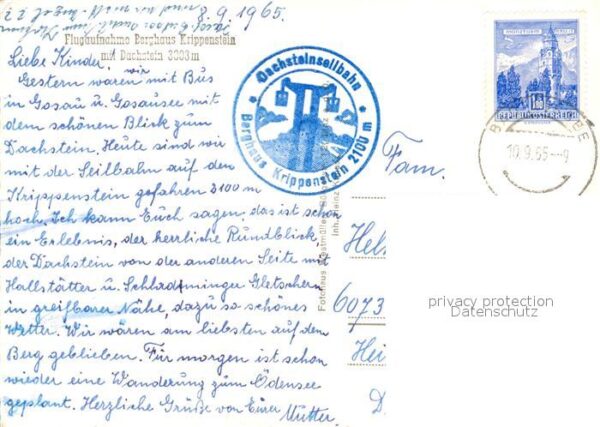 8.9.1965.
Flugaufnahme Berghaus Krippenstein
mit Dachstein 3003 m
Liebe Kinder,
Gestern waren wir mit Bus
in Gosau u. Gosausee mit
dem schönen Blick zum
Dachstein. Heute sind wir
mit der Seilbahn auf den
Krippenstein gefahren 2100 m
hoch. Ich kann Euch sagen, das ist schon
ein Erlebnis, der herrliche Rundblick,
der Dachstein von der anderen Seite mit
Hallstätter u. Schladminger Gletscher
in greifbarer Nähe, dazu so schönes
Wetter. Wir wären am liebsten auf dem
Berg geblieben. Für morgen ist schon
wieder eine Wanderung zum Ödensee
geplant. Herzliche Grüße von Eurer Mutter
Dachsteinseilbahn
Berghaus Krippenstein 2100 m
REPUBLIK ÖSTERREICH
10.9.65--9
Fam.
Hel
6073
Hei
D
privacy protection
Datenschutz